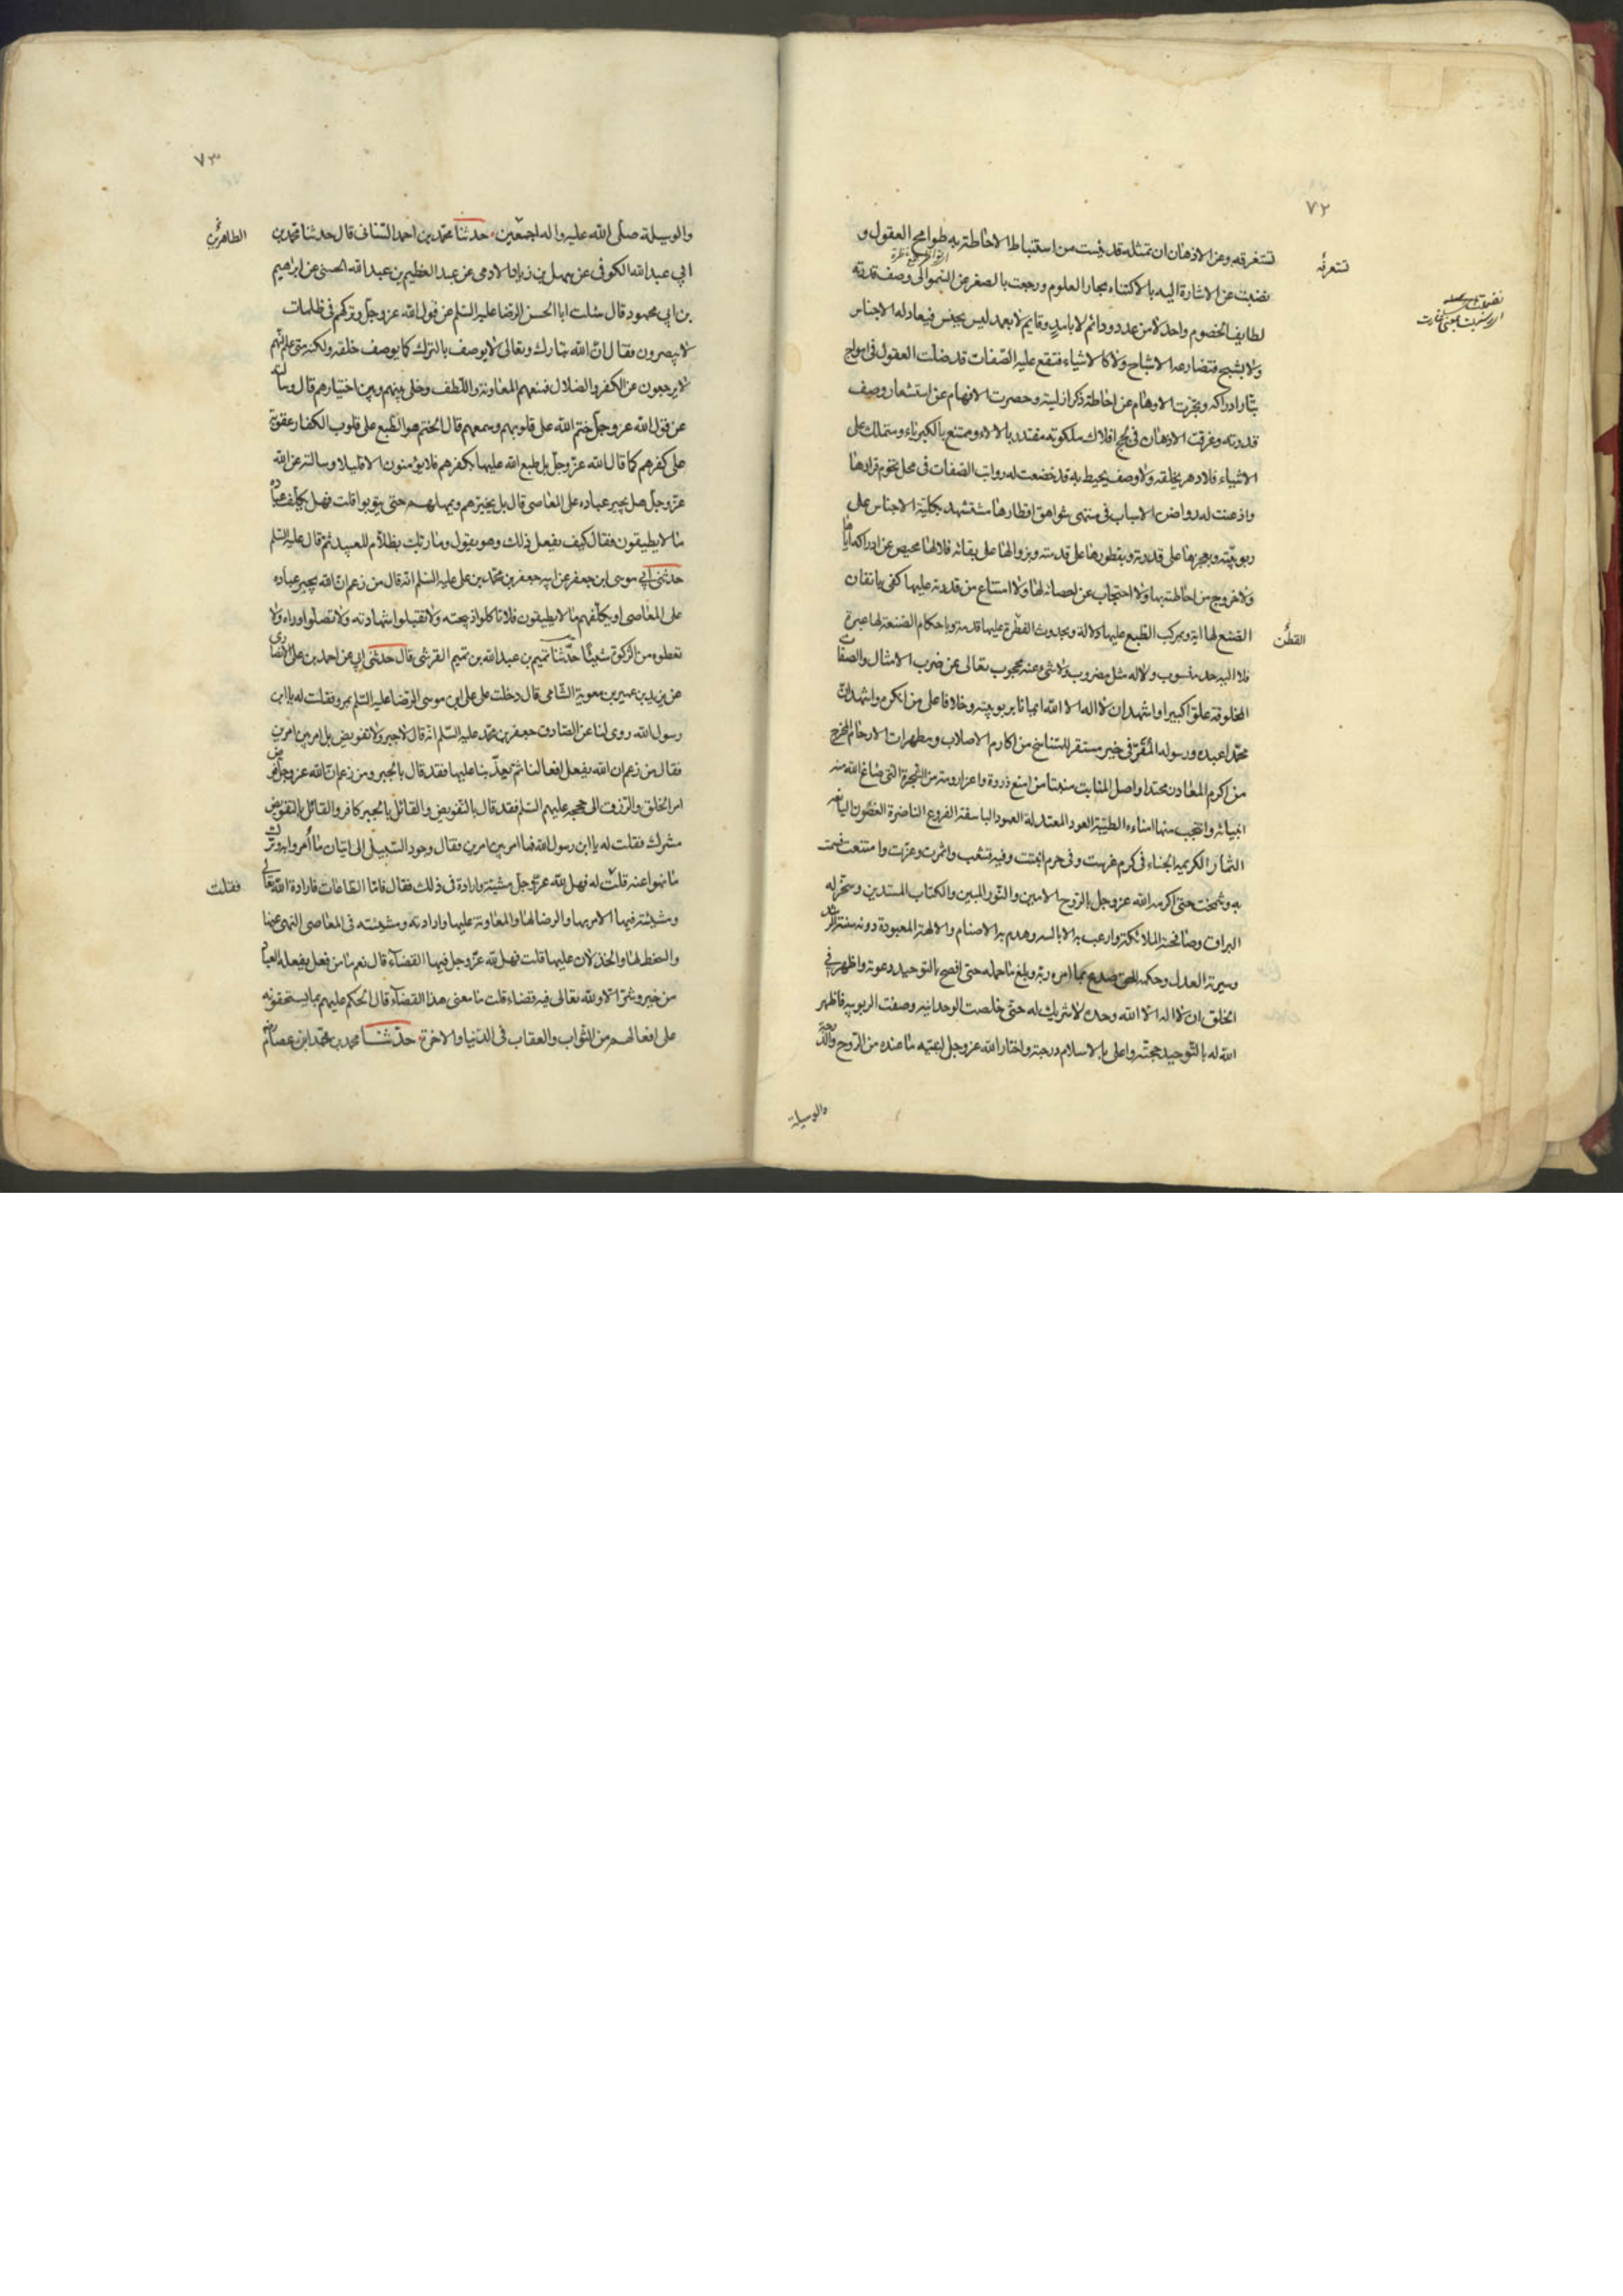 ٧٢
تستغرقه وعن الاذهان ان تمثله قد يئست من استنباط الاحاطة به طوامح العقول و
تستعرفه
نضبت عن الاشارة اليه بالاكتناه بحار العلوم ورجعت بالصغر عن السمو الى وصف قدرته
لطايف الخصوم واحد لا من عدد ودائم لا بامد وقايم لا بعمد ليس بجنس فيعادله الاجناس
ولا بشبح فتضارعه الاشباح ولا كالاشياء فتقع عليه الصفات قد ضلت العقول فى امواج
تيار ادراكه وتحيرت الاوهام عن احاطة ذكر ازليته وحصرت الافهام عن استشعار وصف
قدرته وغرقت الاذهان فى لجج افلاك ملكوته مقتدر بالالاء وممتنع بالكبرياء ومتملك على
الاشياء فلا دهر يخلقه ولا وصف يحيط به قد خضعت له رواتب الصفات فى محل تخوم قرارها
واذعنت له رواصن الاسباب فى منتهى شواهق اقطارها مستشهد بكلية الاجناس على
ربوبيته وبعجزها على قدرته وبفطورها على قدمته وبزوالها على بقائه فلا لها محيص عن ادراكه اياها
ولا خروج من احاطته بها ولا احتجاب عن احصائه لها ولا امتناع من قدرته عليها كفى باتقان
الصنع لها اية وبمركب الطبع عليها دلالة وبحدوث الفطر عليها قدمة وباحكام الصنعة لها عبرة
الفطن
فلا اليه حد منسوب ولا له مثل مضروب ولا شىء عنه محجوب تعالى عن ضرب الامثال والصفات
المخلوقة علوا كبيرا واشهد ان لا اله الا الله ايمانا بربوبيته وخلافا على من انكره واشهد ان
محمدا عبده ورسوله المقر فى خير مستقر المتناسخ من اكارم الاصلاب ومطهرات الارحام المخرج
من اكرم المعادن محتدا وافضل المنابت منبتا من امنع ذروة واعز ارومة من الشجرة التى صاغ الله منها
انبيائه وانتجب منها امناءه الطيبة العود المعتدلة العمود الباسقة الفروع الناضرة الغصون اليانعة
الثمار الكريمة الجناء فى كرم غرست وفى حرم انبتت وفيه تشعب واثمرت وعزت وامتنعت فسمت
به وشمخت حتى اكرمه الله عز وجل بالروح الامين والنور المبين والكتاب المستبين وسخر له
البراق وصافحته الملائكة وارعب به الابالسة وهدم به الاصنام والالهة المعبودة دونه سنته الرشد
وسيرته العدل وحكمه الحق صدع بما امره ربه وبلغ ما حمله حتى افصح بالتوحيد دعوته واظهر فى
الخلق ان لا اله الا الله وحده لا شريك له حتى خلصت الوحدانيه وصفت الربوبيه فاظهر
الله له بالتوحيد حجته واعلى بالاسلام درجته واختار الله عز وجل لنبيه ما عنده من الروح والدرجة
والوسيلة
٧٣
والوسيلة صلى الله عليه واله اجمعين حدثنا محمد بن احمد السنانى قال حدثنا محمد بن
الطاهرين
ابي عبد الله الكوفى عن سهل بن زياد الادمى عن عبد العظيم بن عبد الله الحسنى عن ابراهيم
بن ابى محمود قال سئلت ابا الحسن الرضا عليه السلم عن قول الله عز وجل وتركهم فى ظلمات
لا يبصرون فقال ان الله تبارك وتعالى لا يوصف بالترك كما يوصف خلقه ولكنه متى علم انهم
لا يرجعون عن الكفر والضلال فمنعهم المعاونة واللطف وخلى بينهم وبين اختيارهم قال وسالته
عن قول الله عز وجل ختم الله على قلوبهم وسمعهم قال الختم هو الطبع على قلوب الكفار عقوبة
على كفرهم كما قال الله عز وجل بل طبع الله عليها بكفرهم فلا يؤمنون الا قليلا وسالته عن الله
عز وجل هل يجبر عباده على المعاصى قال بل يخيرهم ويمهلهم حتى يتوبوا قلت فهل يكلف عباده
ما لا يطيقون فقال كيف يفعل ذلك وهو يقول وما ربك بظلام للعبيد ثم قال عليه السلم
حدثنى ابي موسى ابن جعفر عن ابيه جعفر بن محمد بن على عليه السلم انه قال من زعم ان الله يجبر عباده
على المعاصى او يكلفهم ما لا يطيقون فلا تاكلوا ذبيحته ولا تقبلوا شهادته ولا تصلوا وراءه ولا
تعطوه من الزكوة شيئا حدثنا تميم بن عبد الله بن تميم القرشى قال حدثنى ابي عن احمد بن على الانصارى
عن يزيد بن عمير بن معوية الشامى قال دخلت على على ابن موسى الرضا عليه السلم بمرو فقلت له يا ابن
رسول الله روى لنا عن الصادق جعفر بن محمد عليه السلم انه قال لا جبر ولا تفويض بل امر بين امرين
فقال من زعم ان الله يفعل افعالنا ثم يعذبنا عليها فقد قال بالجبر ومن زعم ان الله عز وجل فوض
امر الخلق والرزق الى حججه عليهم السلم فقد قال بالتفويض والقائل بالجبر كافر والقائل بالتفويض
مشرك فقلت له يا ابن رسول الله فما امر بين امرين فقال وجود السبيل الى اتيان ما امروا به وترك
ما نهوا عنه قلت له فهل لله عز وجل مشية وارادة فى ذلك فقال فاما الطاعات فارادة الله تعالى
فقلت
ومشيئته فيها الامر بها والرضا لها والمعاونة عليها وارادته ومشيئته فى المعاصى النهى عنها
والسخط لها والخذلان عليها قلت فهل لله عز وجل فيها القضاء قال نعم ما من فعل يفعله العباد
من خير وشر الا ولله تعالى فيه قضاء قلت ما معنى هذا القضاء قال الحكم عليهم بما يستحقونه
على افعالهم من الثواب والعقاب فى الدنيا والاخرة حدثنا محمد بن محمد ابن عصام